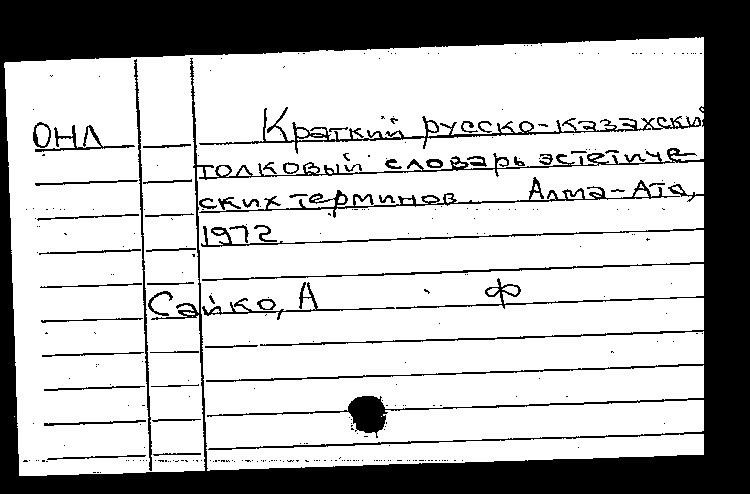 ОНЛ Краткий русско-казахский
толковый словарь эстетиче-
ских терминов. Алма-Ата,
1972.
Сайко, А ф